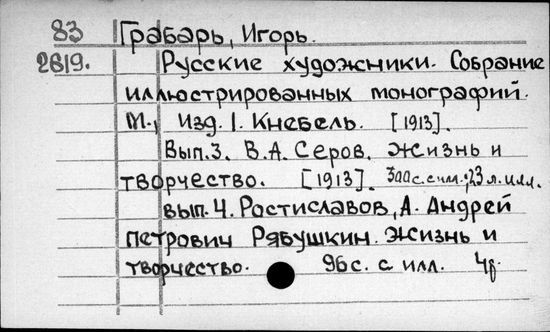 83 Грабарь, Игорь.
2819. Русские художники. Собрание
иллюстрированных монографий.
М., Изд. I. Кнебель. [1913].
Вып.3. В.А. Серов. Жизнь и
творчество. [1913]. 300 с. с илл.; 23 л. илл.
вып. 4. Ростиславов, А. Андрей
Петрович Рябушкин. Жизнь и
творчество. 96 с. с илл.